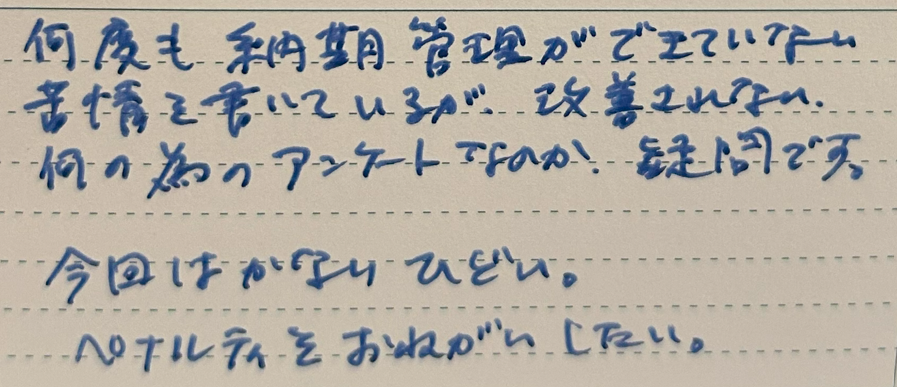 何度も納期管理ができていない
苦情を書いているが、改善されない。
何の為のアンケートなのか、疑問です。
今回はかなりひどい。
ペナルティをおねがいしたい。